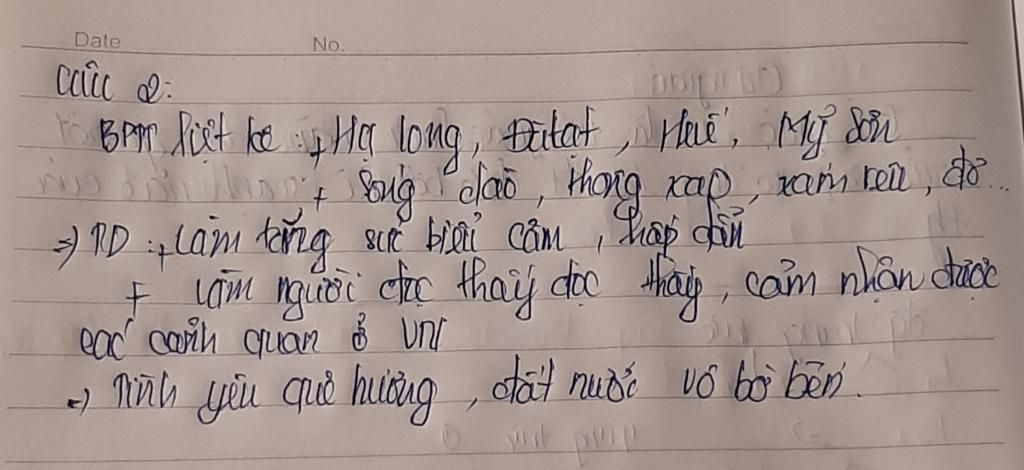 Date No.
Câu 2:
BPTT liệt kê : + Hạ long, Đà Lạt, Huế, Mỹ Sơn
+ Sông đào, thong xap, xam rêu, đỏ...
=> TD : + Làm tăng sức biểu cảm, hấp dẫn
+ làm người đọc thấy đọc thấy, cảm nhận được
các cảnh quan ở VN
=> Tình yêu quê hương, đất nước vô bờ bến.